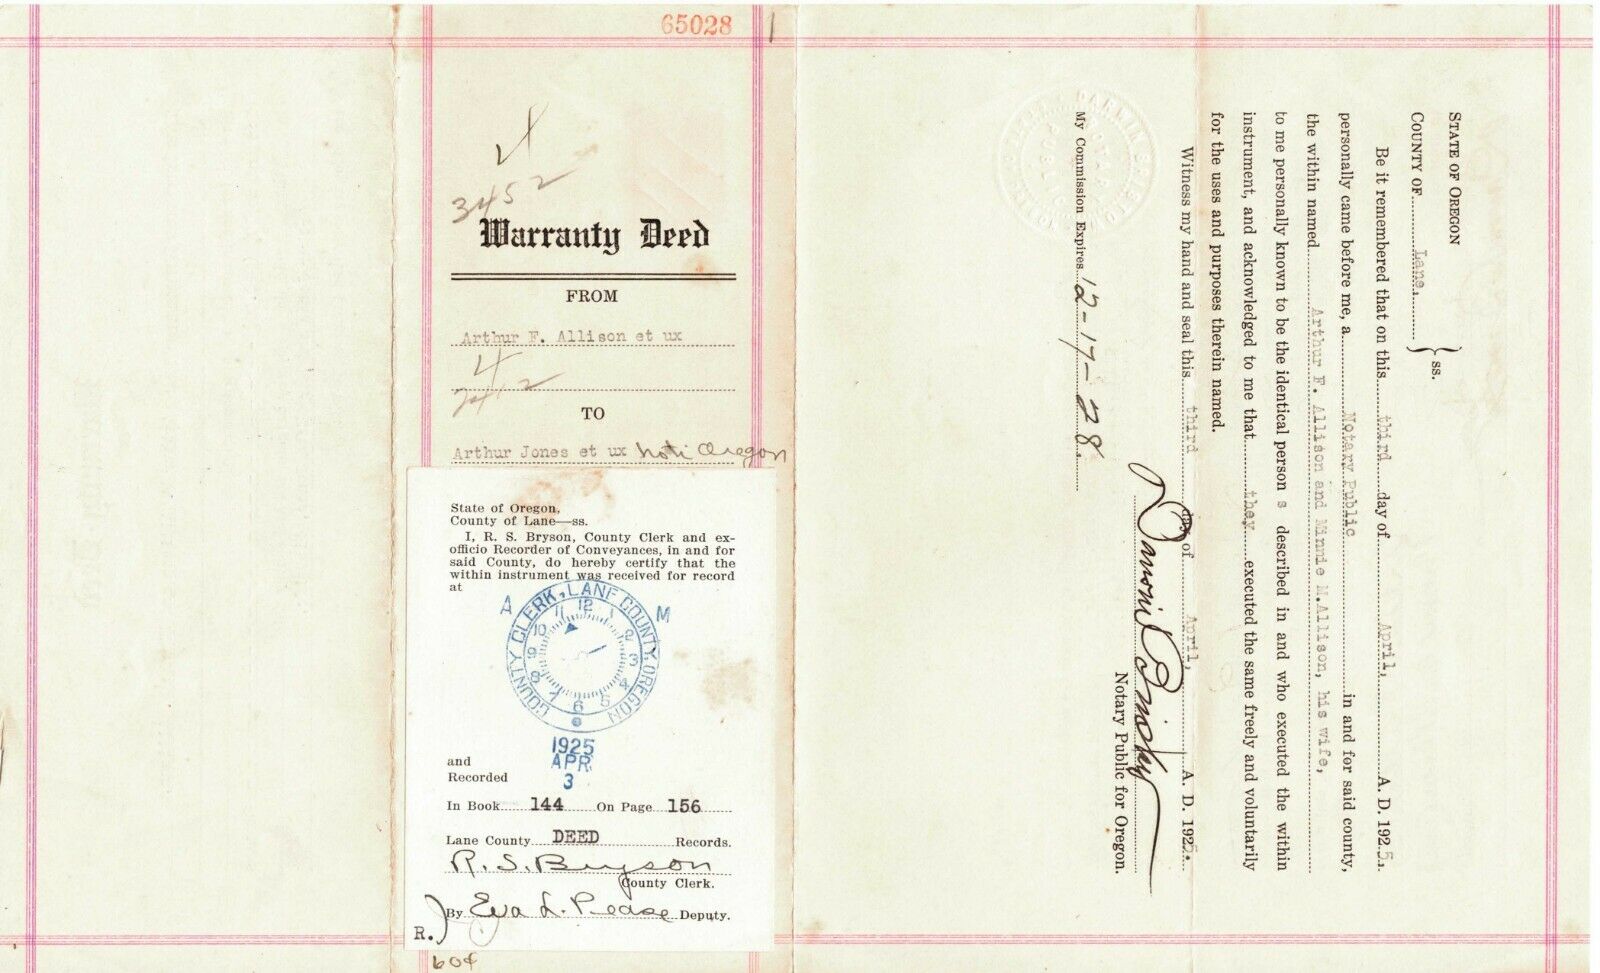 65028
4
3452
Warranty Deed
FROM
Arthur F. Allison et ux
4
TO
Arthur Jones et ux Noti Oregon
State of Oregon,
County of Lane—ss.
I, R. S. Bryson, County Clerk and ex-
officio Recorder of Conveyances, in and for
said County, do hereby certify that the
within instrument was received for record
at
A M
COUNTY CLERK, LANE COUNTY, OREGON
12 1 2 3 4 5 6 7 8 9 10 11
1925
APR
3
and
Recorded
In Book 144 On Page 156
Lane County DEED Records.
R. S. Bryson
County Clerk.
By Eva L. Pease Deputy.
R.
60¢
STATE OF OREGON
COUNTY OF Lane, } ss.
Be it remembered that on this third day of April, A. D. 1925,
personally came before me, a Notary Public in and for said county,
the within named Arthur F. Allison and Minnie M.Allison, his wife,
to me personally known to be the identical person s described in and who executed the within
instrument, and acknowledged to me that they executed the same freely and voluntarily
for the uses and purposes therein named.
Witness my hand and seal this third day of April, A. D. 1925.
Notary Public for Oregon.
My Commission Expires 12-17-28.